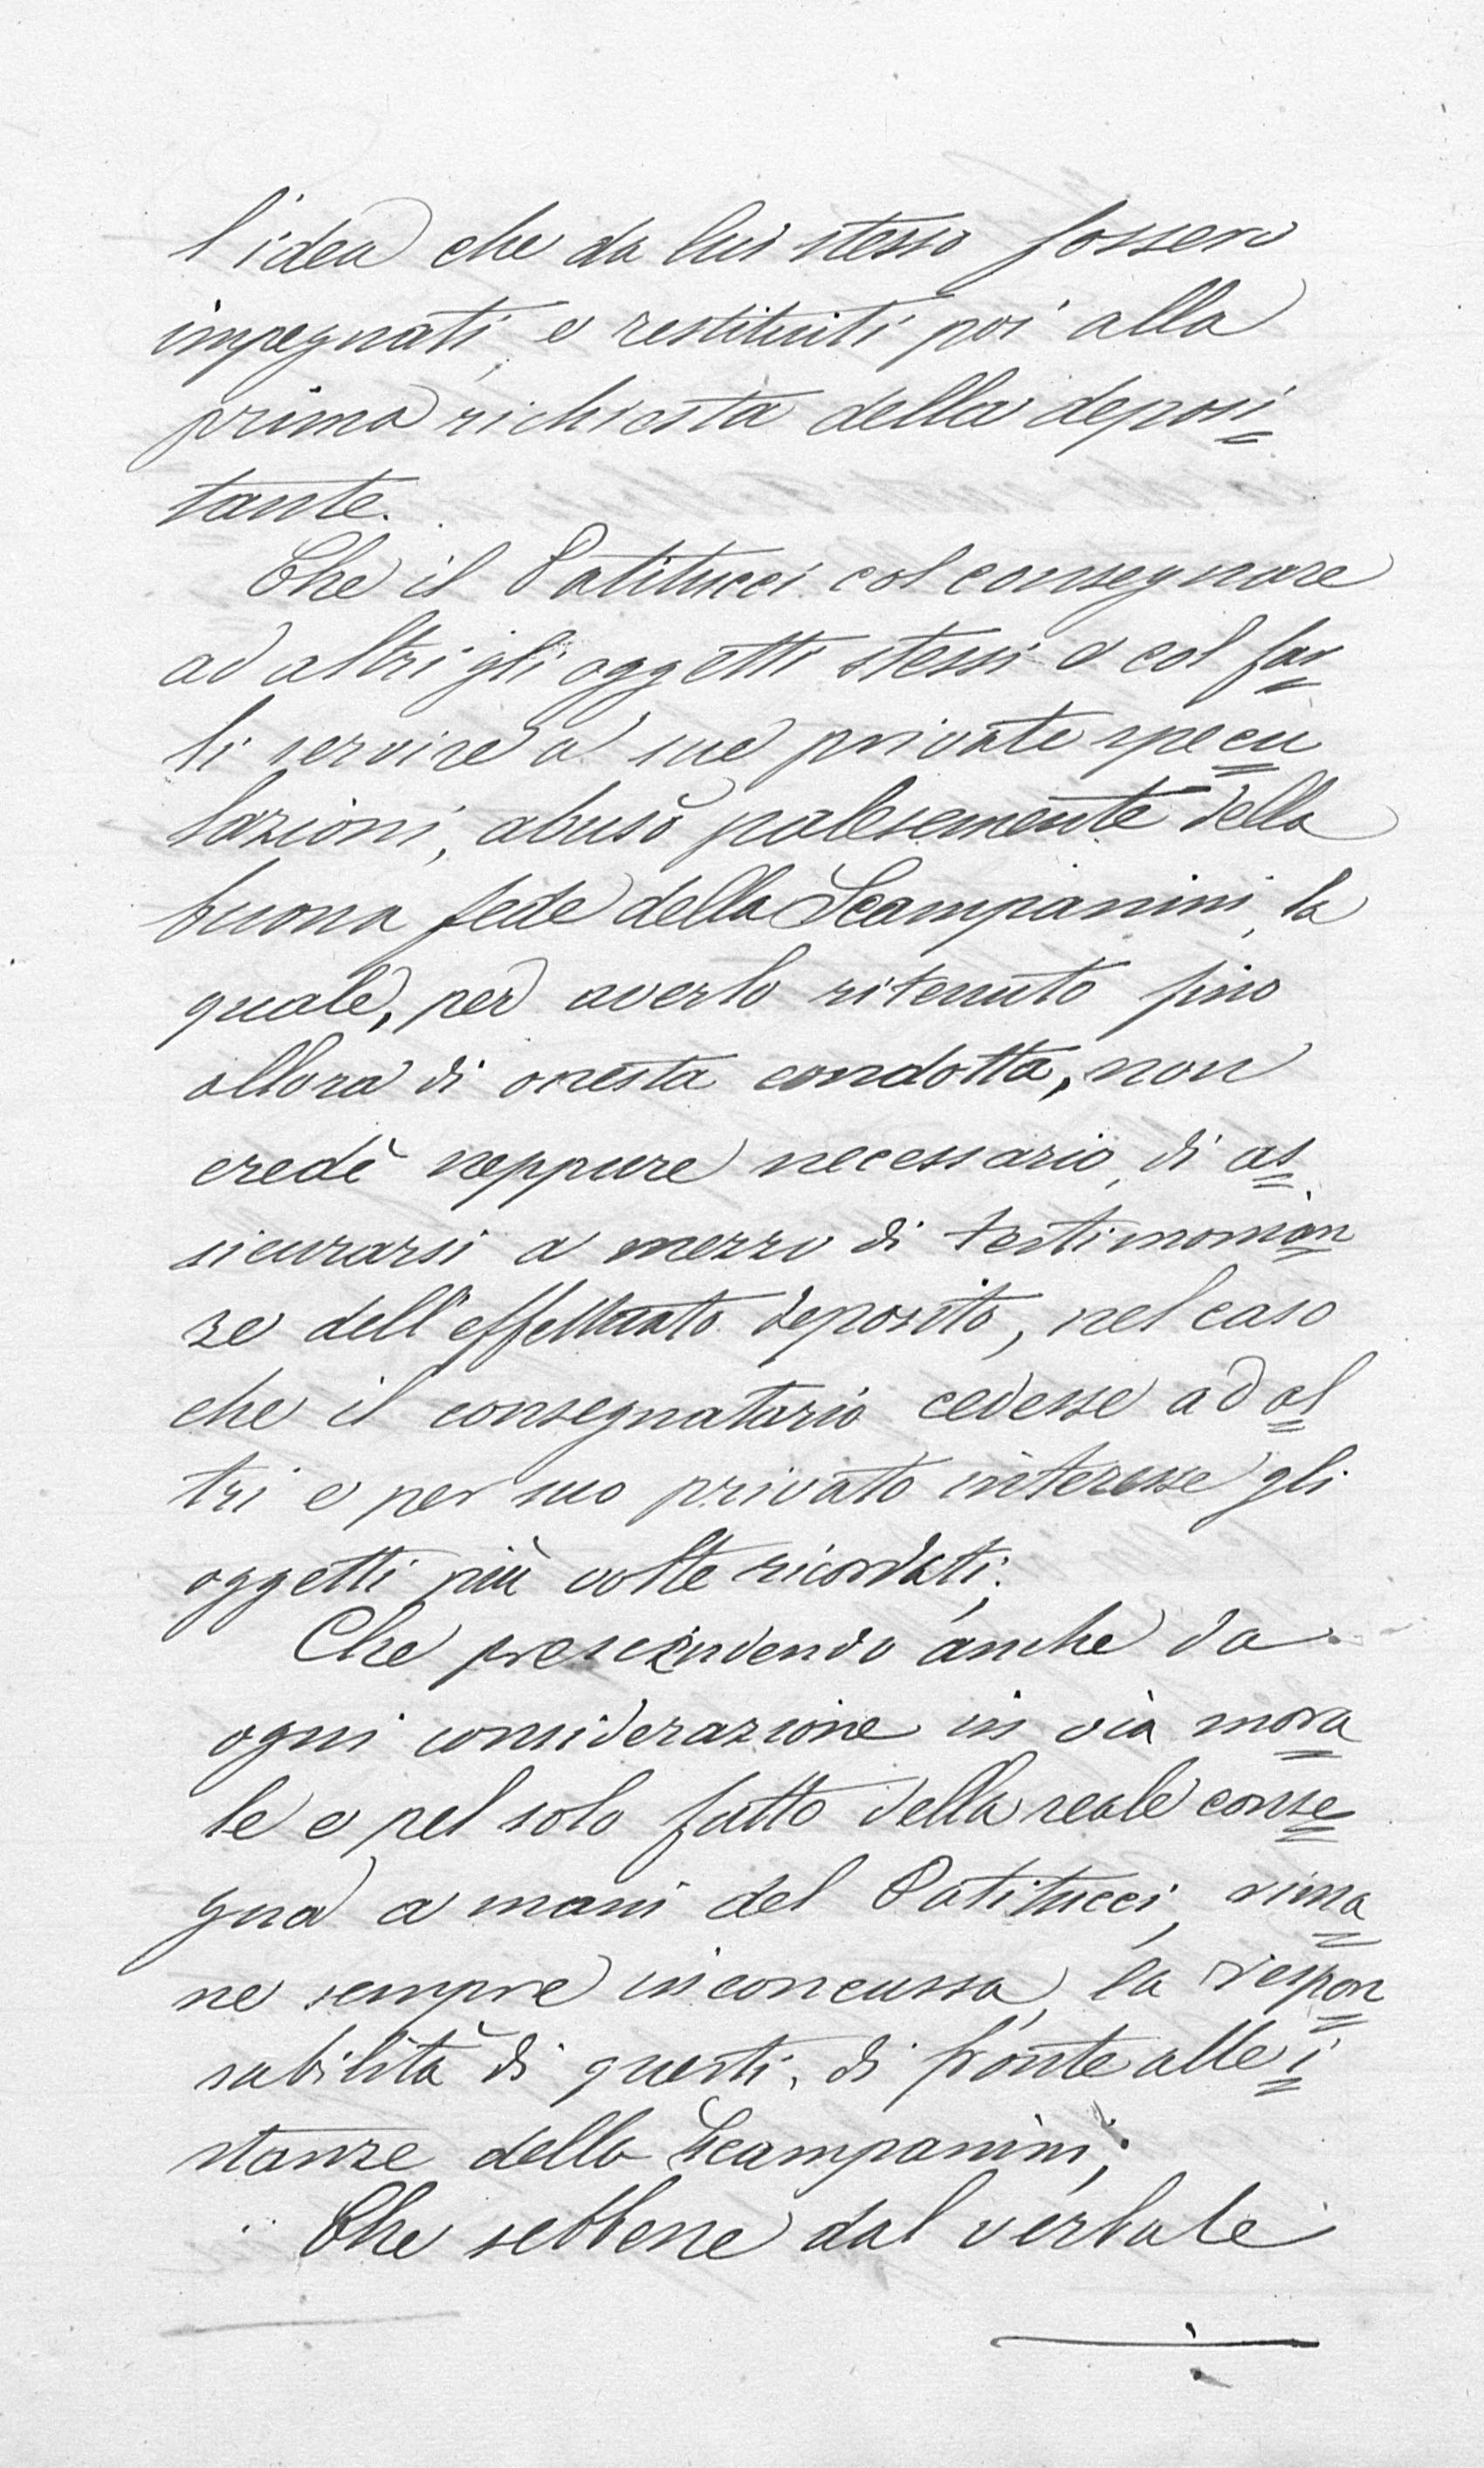 l'idea che da lui stesso fossero
impegnati, e restituiti poi alla
prima richiesta della deposi=
tante.
Che il Patitucci col consegnare
ad altri gli oggetti stessi e col far=
li servire a sue private specu=
lazioni, abusò palesemente della
buona fede della Scampanini, la
quale, per averlo ritenuto fino
allora di onesta condotta, non
credè neppure necessario, di as=
sicurarsi a mezzo di testimonian=
ze dell'effettuato deposito, nel caso
che il consegnatario cedesse ad al=
tri e per suo privato interesse gli
oggetti più volte ricordati;
Che prescindendo anche da
ogni considerazione in via mora=
le e pel solo fatto della reale conse=
gna a mani del Patitucci, rima=
ne sempre inconcussa, la respon=
sabilità di questi, di fronte alle i=
stanze della Scampanini;
Che sebbene dal verbale